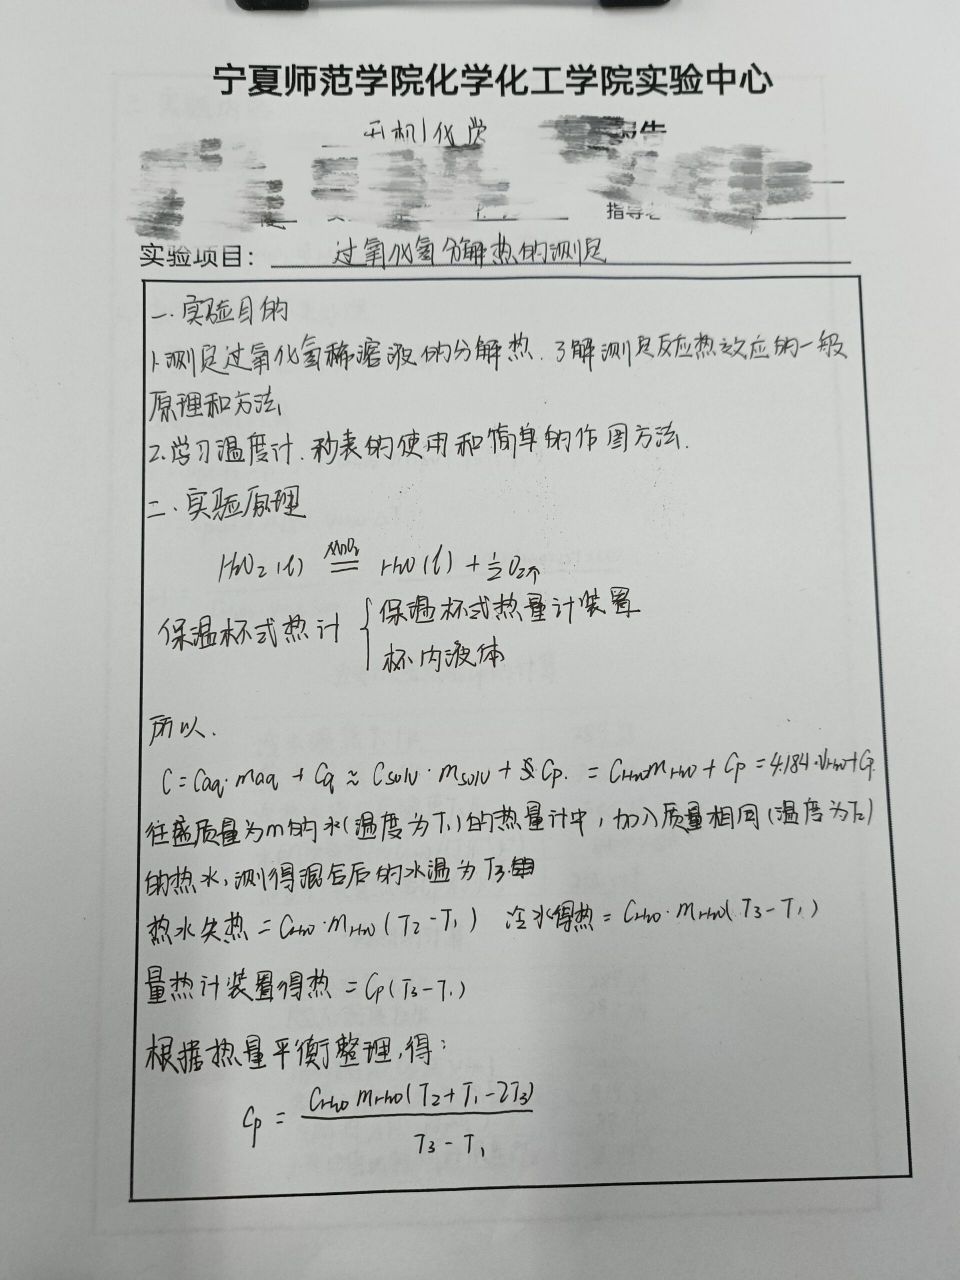 宁夏师范学院化学化工学院实验中心
无机化学 报告
指导
实验项目：过氧化氢分解热的测定
一.实验目的
1.测定过氧化氢稀溶液的分解热.了解测定反应热效应的一般
原理和方法
2.学习温度计.秒表的使用和简单的作图方法.
二.实验原理
H2O2(l) MnO2 == H2O(l) + 1/2 O2↑
保温杯式热计 { 保温杯式热量计装置
杯内液体
所以.
C = Caq·maq + Cq ≈ Csolv·msolv + Cp. = CH2OmH2O + Cp = 4.184·VH2O+Cp
往盛质量为m的水(温度为T1)的热量计中，加入质量相同(温度为T2)
的热水，测得混合后的水温为T3.
热水失热 = CH2O·mH2O(T2-T1) 冷水得热 = CH2O·mH2O(T3-T1)
量热计装置得热 = Cp(T3-T1)
根据热量平衡整理,得:
Cp = CH2O mH2O(T2+T1-2T3)
T3-T1